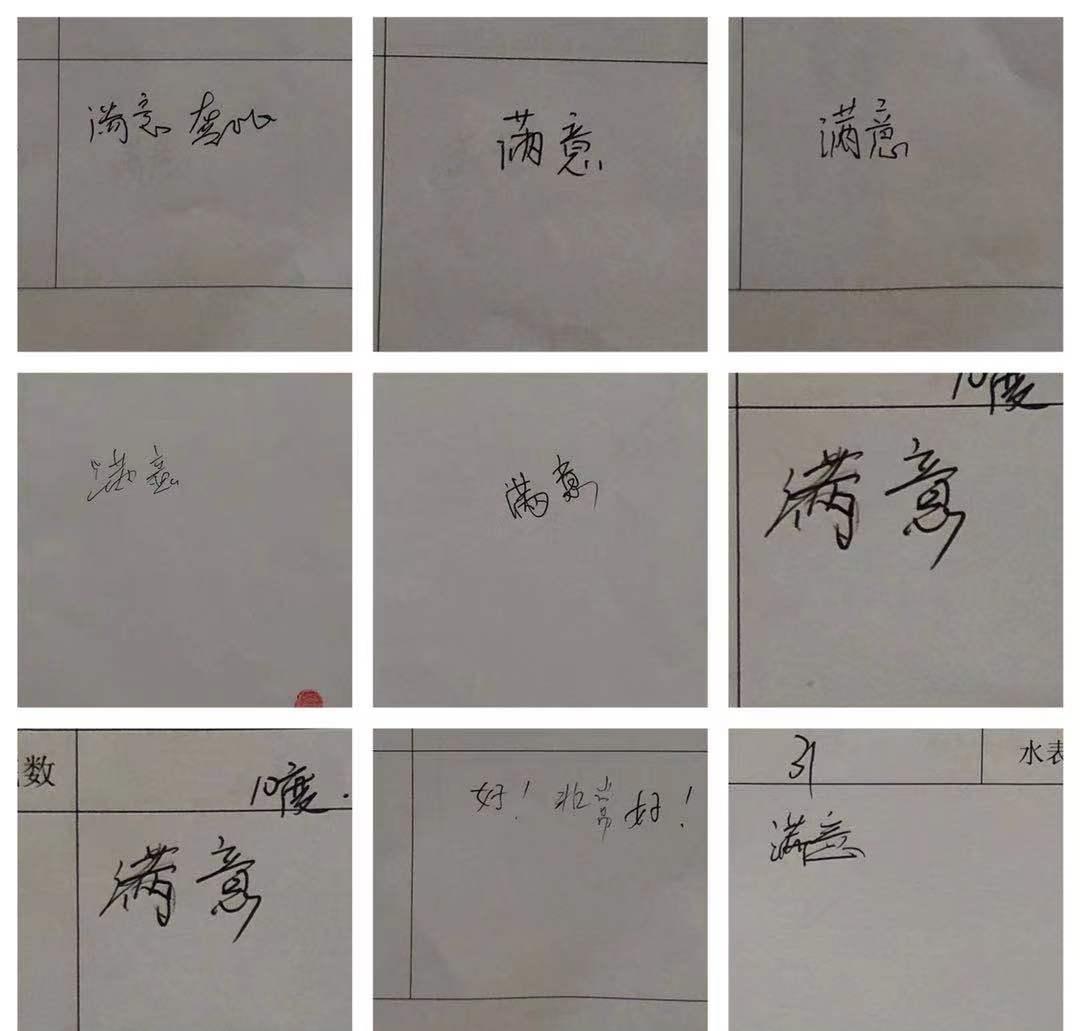 满意
满意
满意
满意
满意
10度
满意
数
10度.
满意
好！非常好！
31
水表
满意